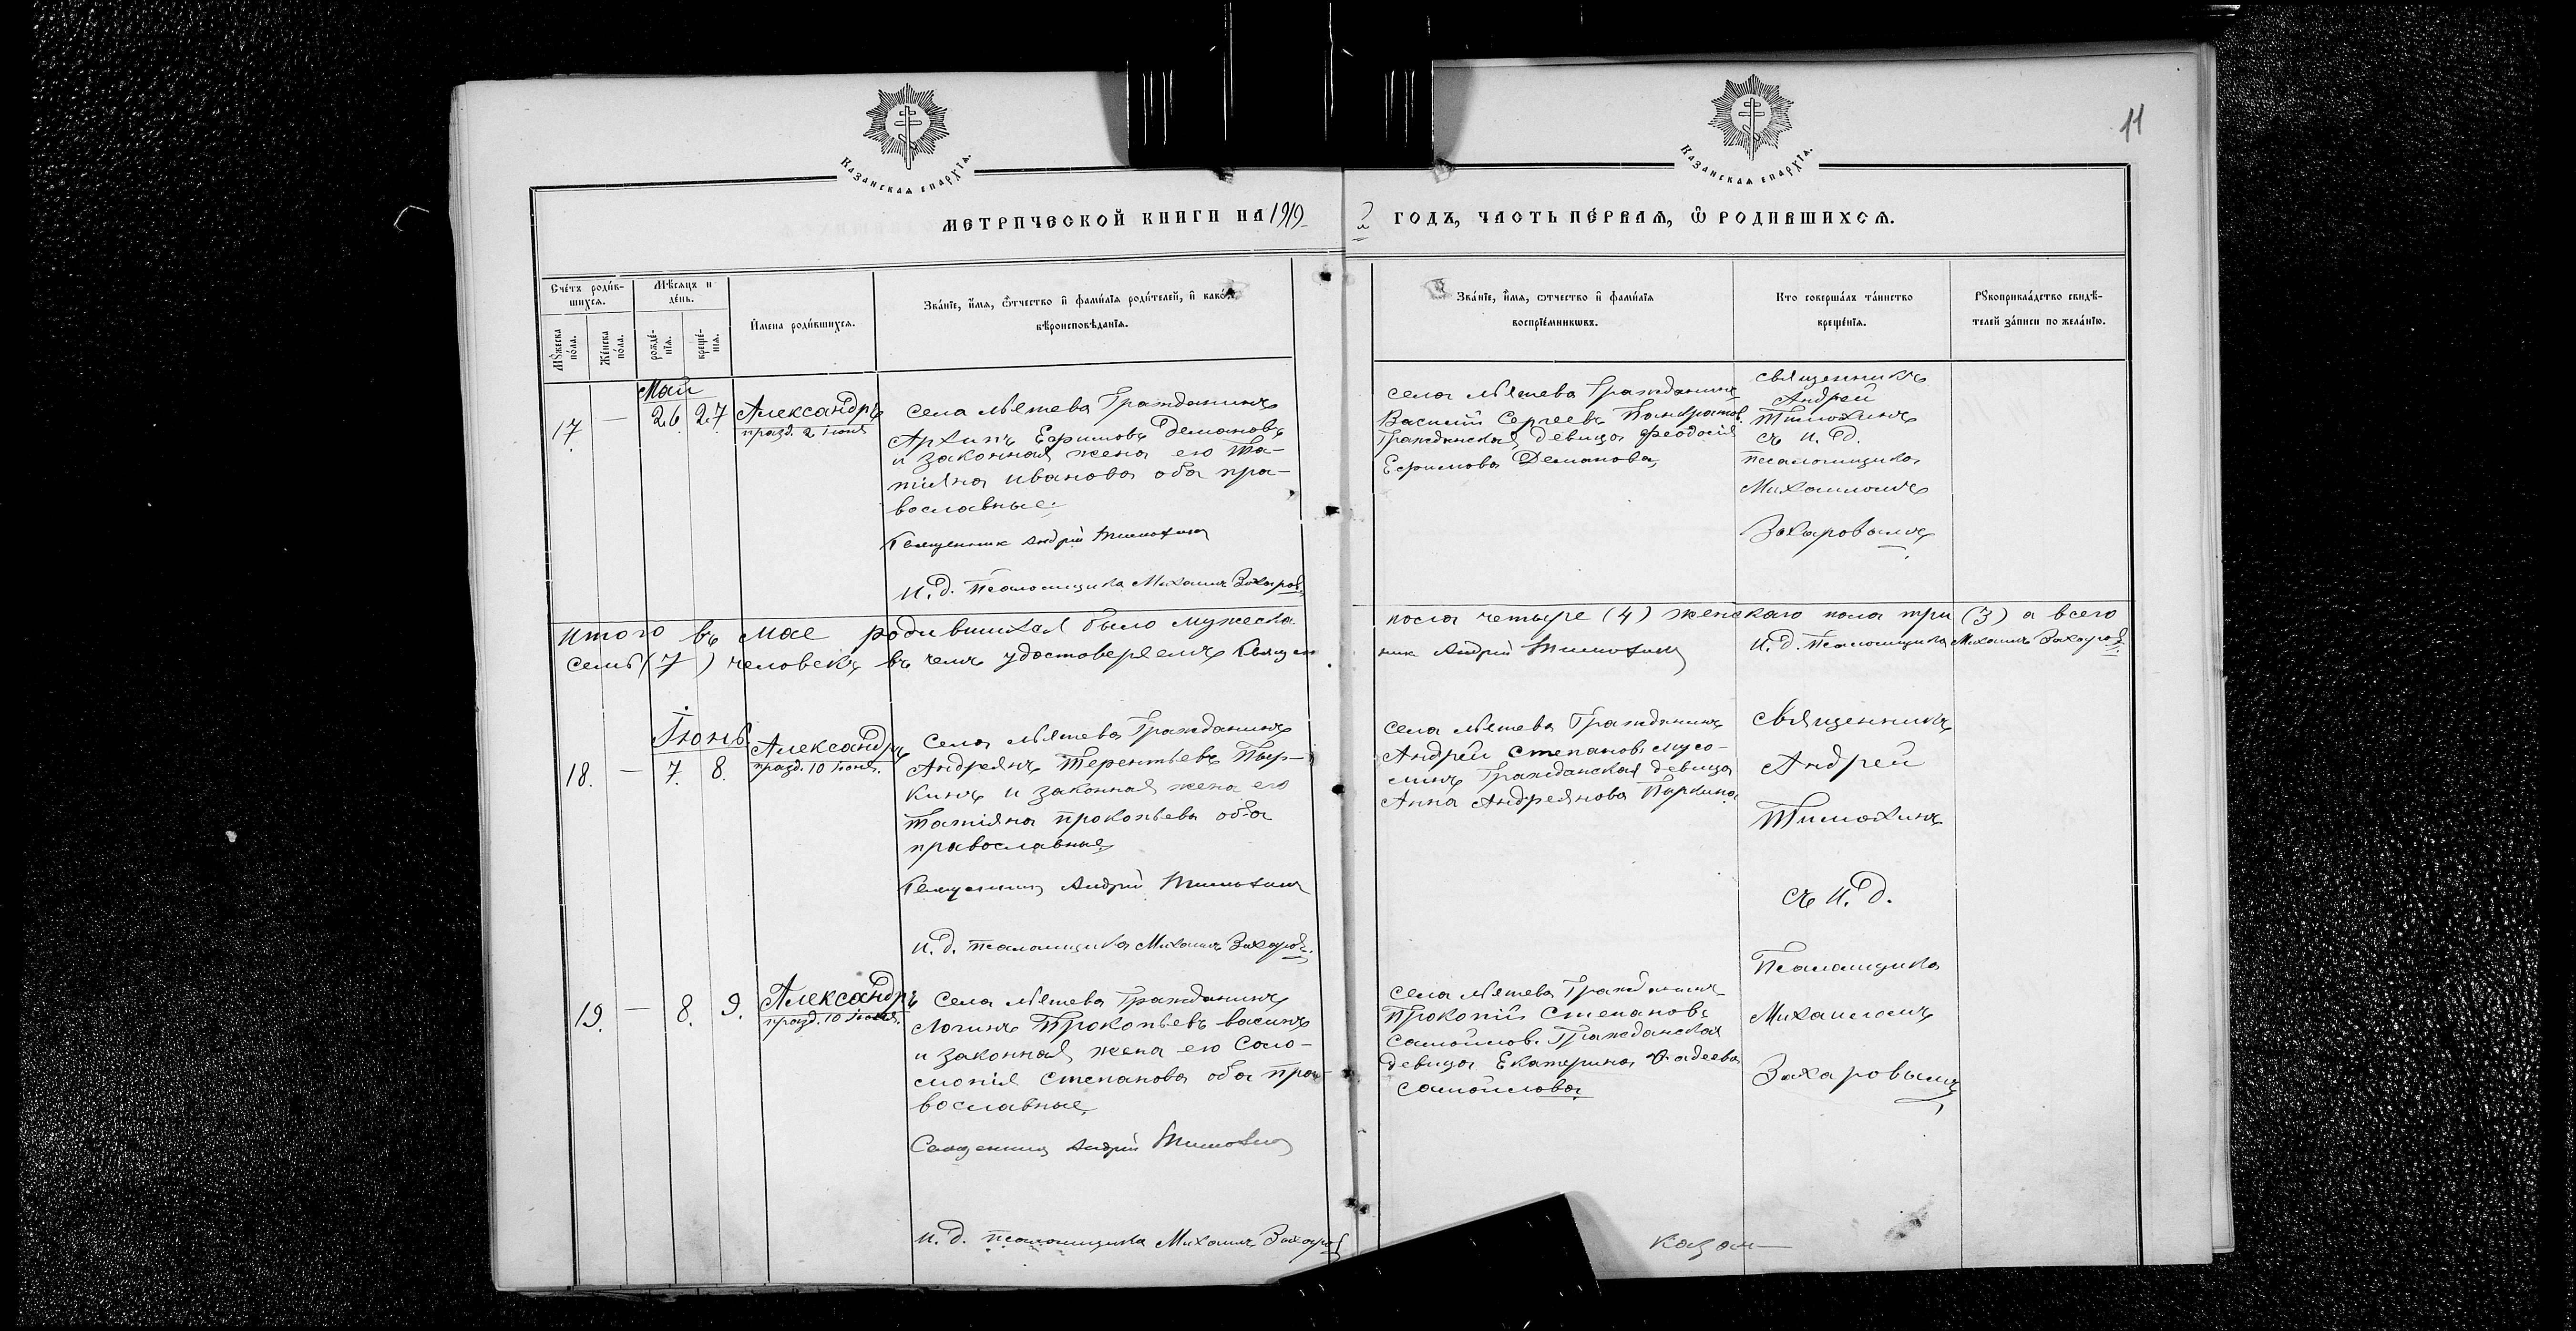 11
Казанская епархїя.
Казанская епархїя.
МЕТРИЧЕСКОЙ КНИГИ НА 1919
ГОДЪ, ЧАСТЬ ПЕ́РВАЯ, Ѡ РОДИВШИХСЯ.
Сче́тъ роди́в-
шихся.
Мѣ́сяцъ и
де́нь.
Мꙋ́жеска
по́ла.
Же́нска
по́ла.
рожде́-
нїя.
креще́-
нїя.
И҆мена роди́вшихся.
Зва́нїе, и҆́мя, ѻ҆́тчество и҆ фами́лїя роди́телей, и҆ како́гѡ
вѣроисповѣ́данїя.
Зва́нїе, и҆́мя, ѻ҆́тчество и҆ фами́лїя
воспрїе́мникѡвъ.
Кто соверша́лъ та́инство
креще́нїя.
Рꙋкоприкла́дство свидѣ́-
телей за́писи по жела́нїю.
Май
17. — 26. 27 Александръ
празд. 2 іюня
Села Мятева Гражданинъ
Архипъ Ефимовъ Демановъ
и законная жена его Та-
тіяна Иванова оба пра-
вославные.
Священник Андрей Тимохин
И. д. Псаломщика Михаилъ Захаровъ
села Мятева Гражданинъ
Василій Сергеевъ Панкратов.
Гражданская девица Феодосія
Ефимова Деманова
Священникъ
Андрей
Тимохинъ
съ И. д.
псаломщика
Михаиломъ
Захаровымъ
Итого въ мае родившихся было мужеска пола четыре (4) женскаго пола три (3) а всего
семь (7) человекъ въ чемъ удостоверяемъ Священник Андрей Тимохин И. д. Псаломщика Михаилъ Захаров.
Іюнь
18. — 7. 8. Александръ
празд. 10 іюня.
Села Мятева Гражданинъ
Андреянъ Терентьевъ Пыр-
кинъ и законная жена его
Татіяна Прокопьева оба
православные
Священник Андрей Тимохин
И. д. псаломщика Михаилъ Захаров.
села Мятева Гражданинъ
Андрей Степанов
Гражданская девица
Анна Андреянова Пыркина
Священникъ
Андрей
Тимохинъ
съ И. д.
Псаломщика
Михаиломъ
Захаровымъ
19. — 8. 9. Александръ
празд. 10 іюня.
Села Мятева Гражданинъ
Логинъ Прокопьевъ Васинъ
и законная жена его Соло-
монія Степанова оба пра-
вославные
Священник Андрей Тимохин
И. д. псаломщика Михаилъ Захаров
села Мятева Гражданин
Прокопій Степановъ
Самойлов. Гражданская
девица Екатерина Фадеева
Самойлова.